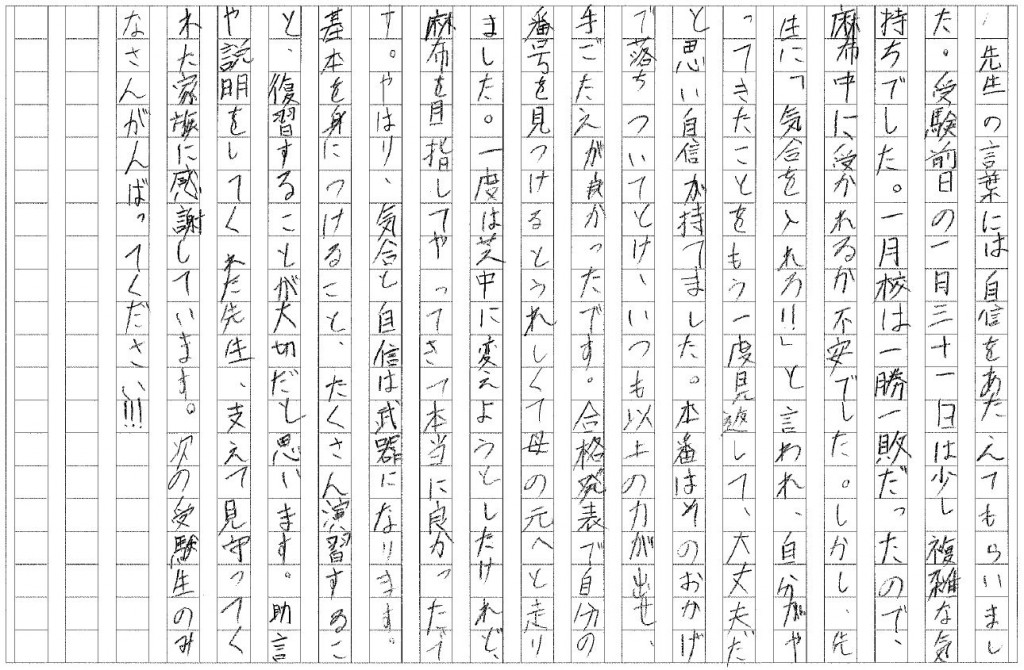 先生の言葉には自信をあたえてもらいまし
た。受験前日の一月三十一日は少し複雑な気
持ちでした。一月校は一勝一敗だったので、
麻布中に受かれるか不安でした。しかし、先
生に「気合を入れろ!!」と言われ、自分がや
ってきたことをもう一度見返して、大丈夫だ
と思い自信が持てました。本番はそのおかげ
で落ちついてとけ、いつも以上の力が出せ、
手ごたえが良かったです。合格発表で自分の
番号を見つけるとうれしくて母の元へと走り
ました。一度は芝中に変えようとしたけれど、
麻布を目指してやってきて本当に良かったで
す。やはり、気合と自信は武器になります。
基本を身につけること、たくさん演習するこ
と、復習することが大切だと思います。助言
や説明をしてくれた先生、支えて見守ってく
れた家族に感謝しています。次の受験生のみ
なさんがんばってください!!!